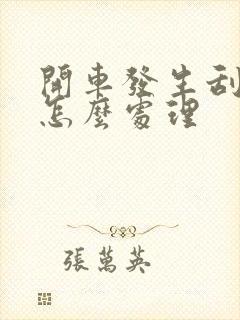 開車發生刮
怎麼處理
張萬英